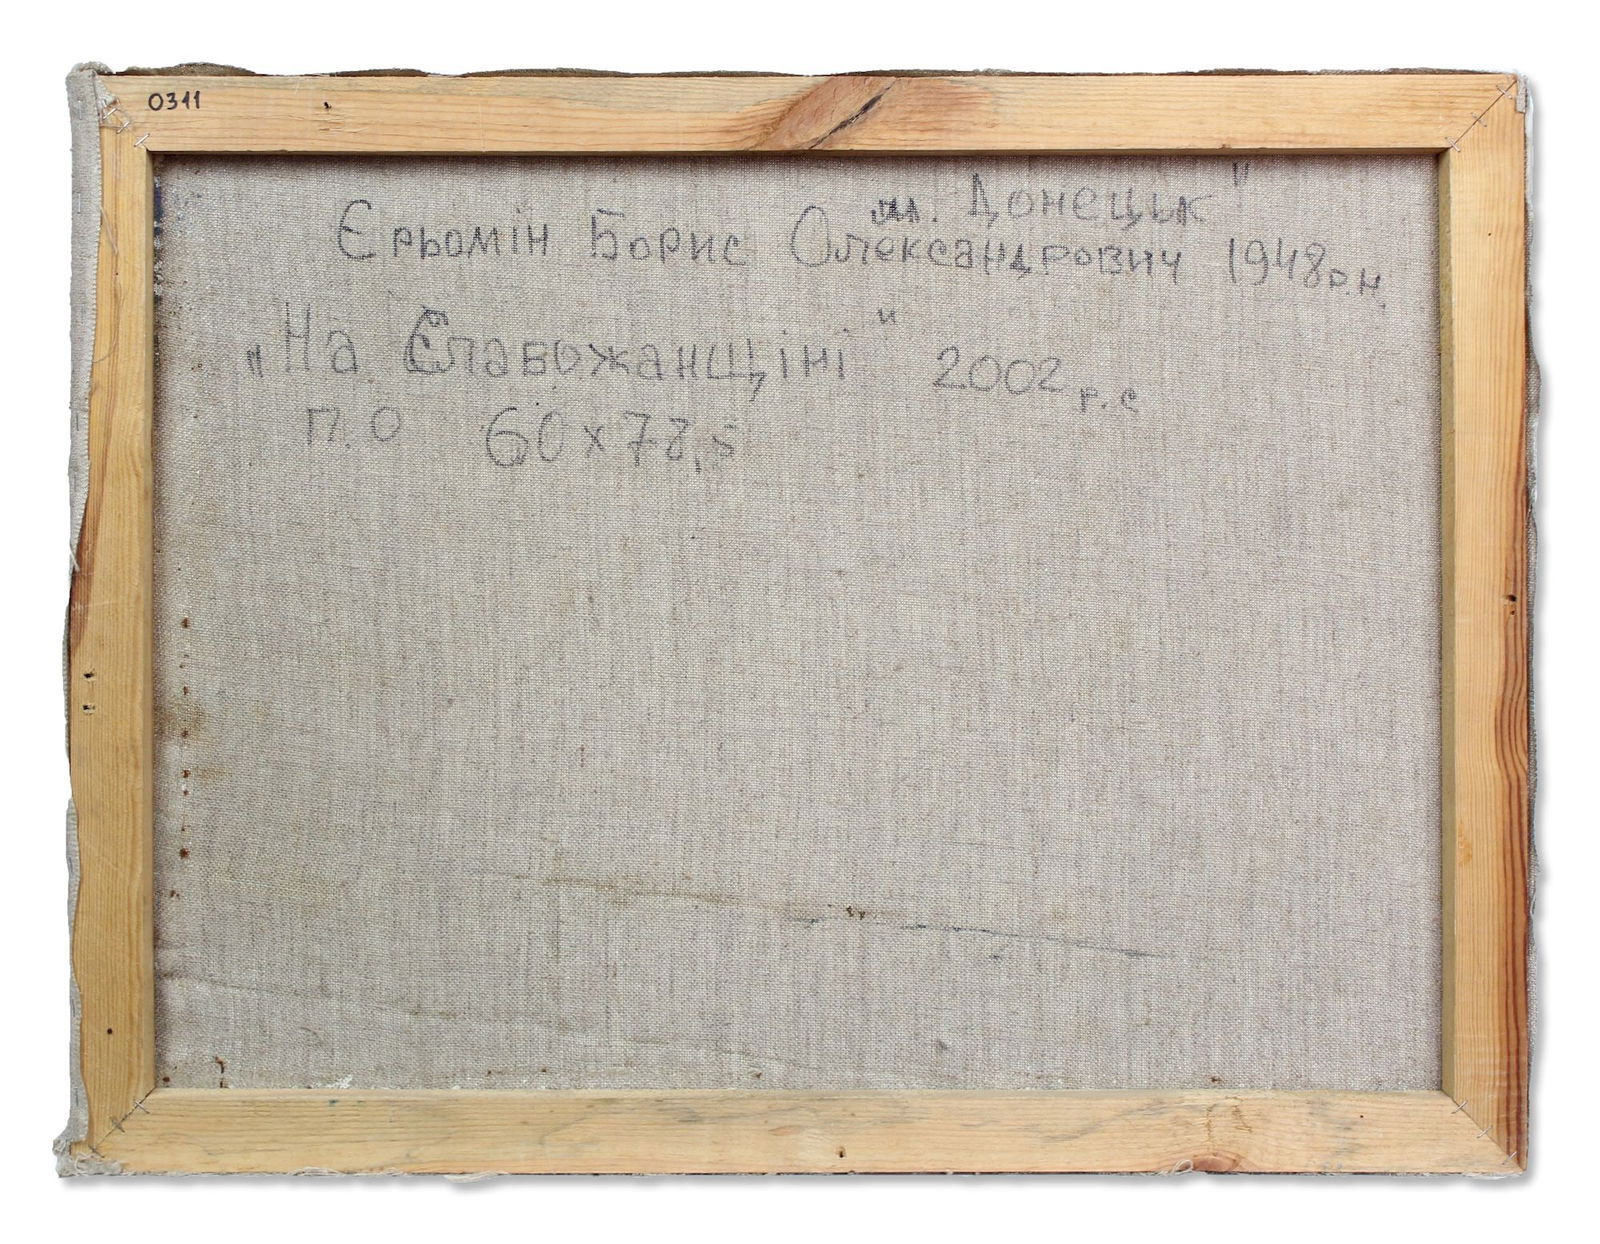 0311
м. Донецьк"
Єрьомін Борис Олександрович 1948р.н.
"На Славожанщіні" 2002 р. с
П.О 60х78,5